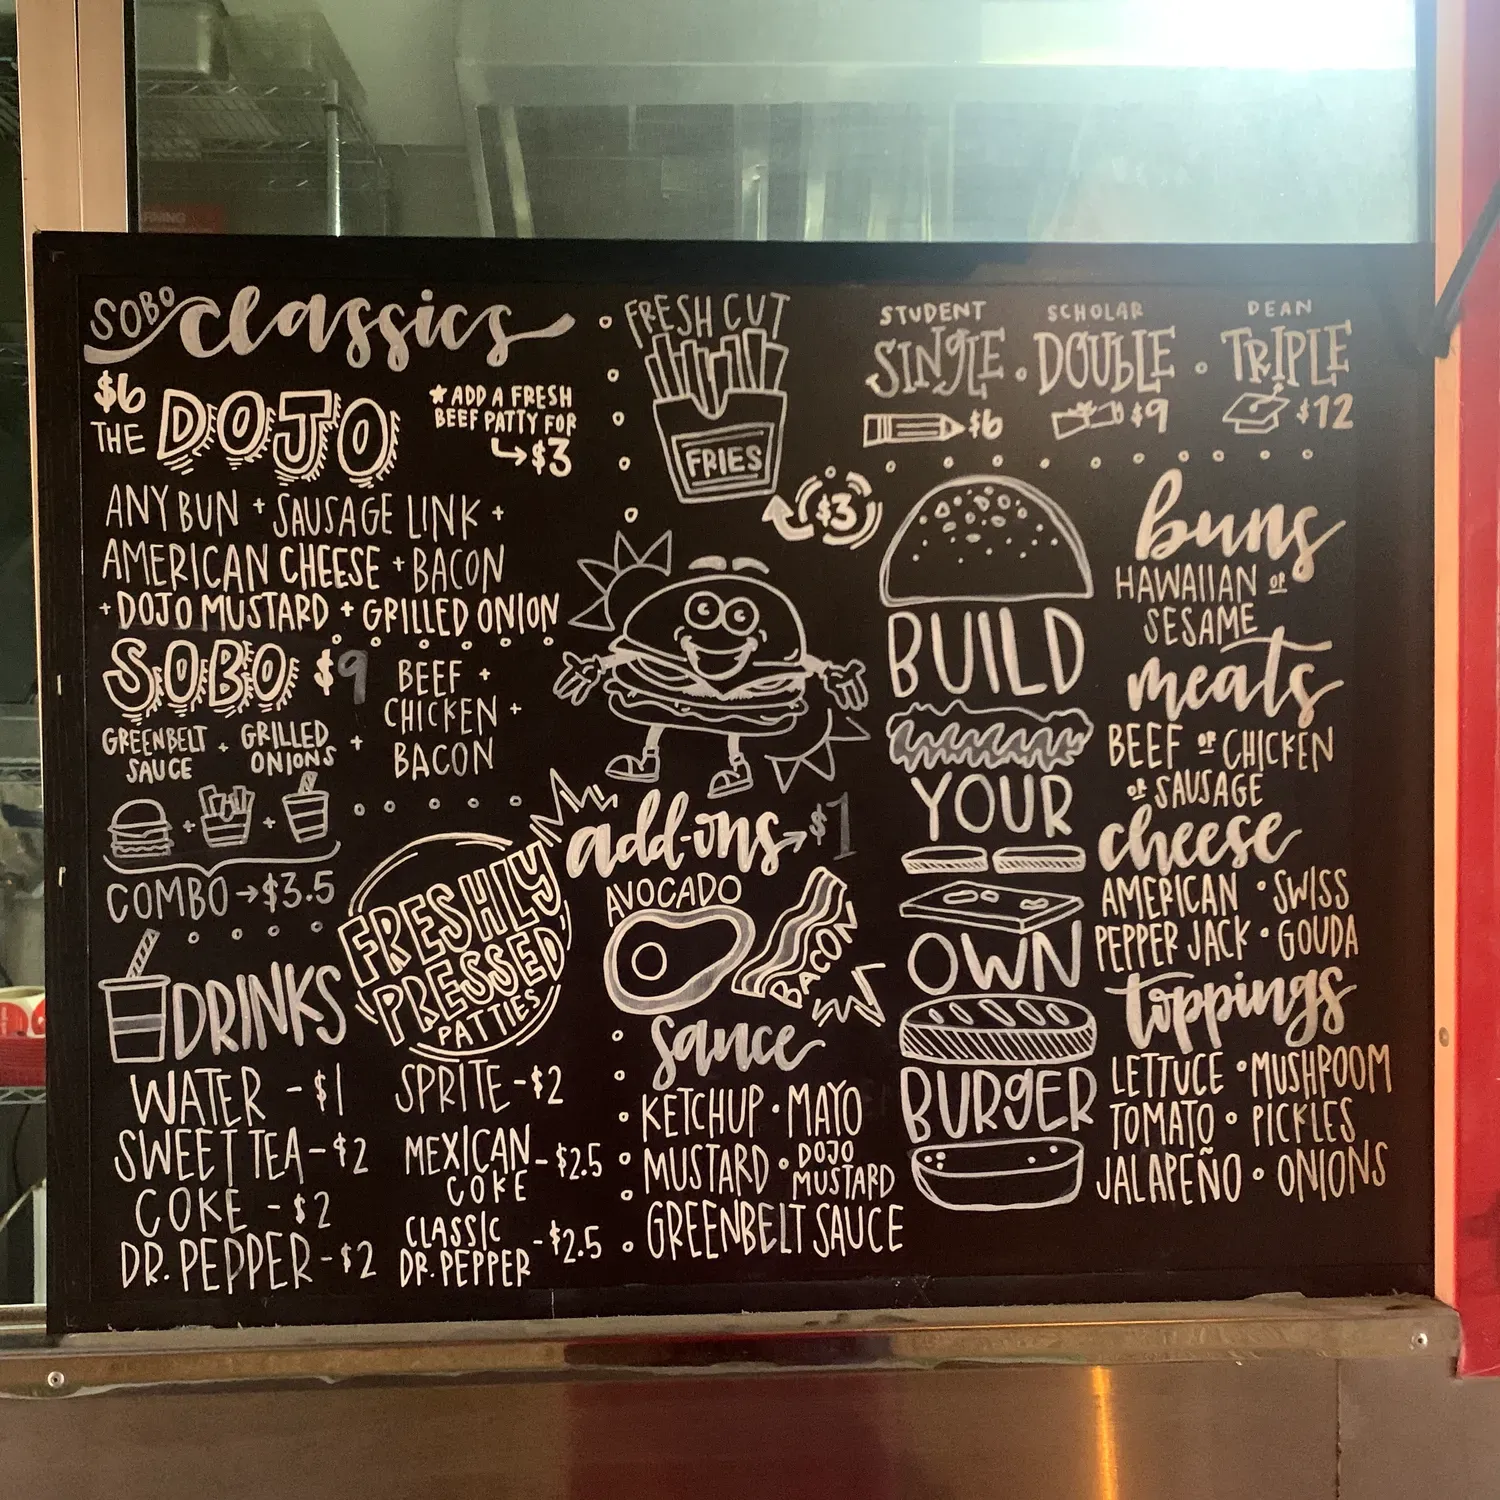 SOBO classics
$6
THE DOJO
★ ADD A FRESH
BEEF PATTY FOR
$3
ANY BUN + SAUSAGE LINK +
AMERICAN CHEESE + BACON
+ DOJO MUSTARD + GRILLED ONION
SOBO $9
BEEF +
CHICKEN +
BACON
GREENBELT SAUCE + GRILLED ONIONS +
COMBO → $3.5
FRESHLY
PRESSED
PATTIES
DRINKS
WATER - $1
SWEET TEA - $2
COKE - $2
DR. PEPPER - $2
SPRITE - $2
MEXICAN COKE - $2.5
CLASSIC DR. PEPPER - $2.5
FRESH CUT
FRIES
$3
add-ons → $1
AVOCADO
BACON
sauce
KETCHUP • MAYO
MUSTARD • DOJO MUSTARD
GREENBELT SAUCE
STUDENT
SINGLE
$6
SCHOLAR
DOUBLE
$9
DEAN
TRIPLE
$12
BUILD
YOUR
OWN
BURGER
buns
HAWAIIAN OR
SESAME
meats
BEEF OR CHICKEN
OR SAUSAGE
cheese
AMERICAN • SWISS
PEPPER JACK • GOUDA
toppings
LETTUCE • MUSHROOM
TOMATO • PICKLES
JALAPEÑO • ONIONS